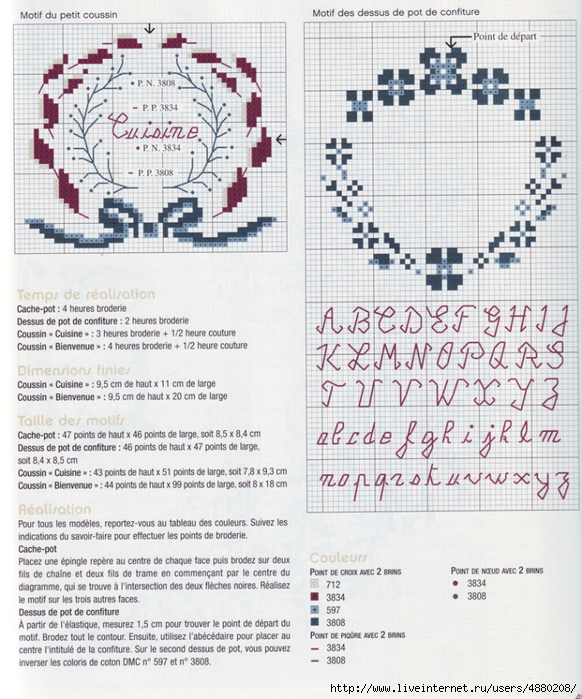 Motif du petit coussin
P. N. 3808
P. P. 3834
Cuisine
P. N. 3834
P. P. 3808
Motif des dessus de pot de confiture
Point de départ
A B C D E F G H I J
K L M N O P Q R S
T U V W X Y Z
a b c d e f g h i j k l m
n o p q r s t u v w x y z
Temps de réalisation
Cache-pot : 4 heures broderie
Dessus de pot de confiture : 2 heures broderie
Coussin « Cuisine » : 3 heures broderie + 1/2 heure couture
Coussin « Bienvenue » : 4 heures broderie + 1/2 heure couture
Dimensions finies
Coussin « Cuisine » : 9,5 cm de haut x 11 cm de large
Coussin « Bienvenue » : 9,5 cm de haut x 20 cm de large
Taille des motifs
Cache-pot : 47 points de haut x 46 points de large, soit 8,5 x 8,4 cm
Dessus de pot de confiture : 46 points de haut x 47 points de large,
soit 8,4 x 8,5 cm
Coussin « Cuisine » : 43 points de haut x 51 points de large, soit 7,8 x 9,3 cm
Coussin « Bienvenue » : 44 points de haut x 99 points de large, soit 8 x 18 cm
Réalisation
Pour tous les modèles, reportez-vous au tableau des couleurs. Suivez les
indications du savoir-faire pour effectuer les points de broderie.
Cache-pot
Placez une épingle repère au centre de chaque face puis brodez sur deux
fils de chaîne et deux fils de trame en commençant par le centre du
diagramme, qui se trouve à l'intersection des deux flèches noires. Réalisez
le motif sur les trois autres faces.
Dessus de pot de confiture
À partir de l'élastique, mesurez 1,5 cm pour trouver le point de départ du
motif. Brodez tout le contour. Ensuite, utilisez l'abécédaire pour placer au
centre l'intitulé de la confiture. Sur le second dessus de pot, vous pouvez
inverser les coloris de coton DMC n° 597 et n° 3808.
Couleurs
POINT DE CROIX AVEC 2 BRINS
712
3834
597
3808
POINT DE PIQÛRE AVEC 2 BRINS
3834
3808
POINT DE NŒUD AVEC 2 BRINS
3834
3808
http://www.liveinternet.ru/users/4880208/